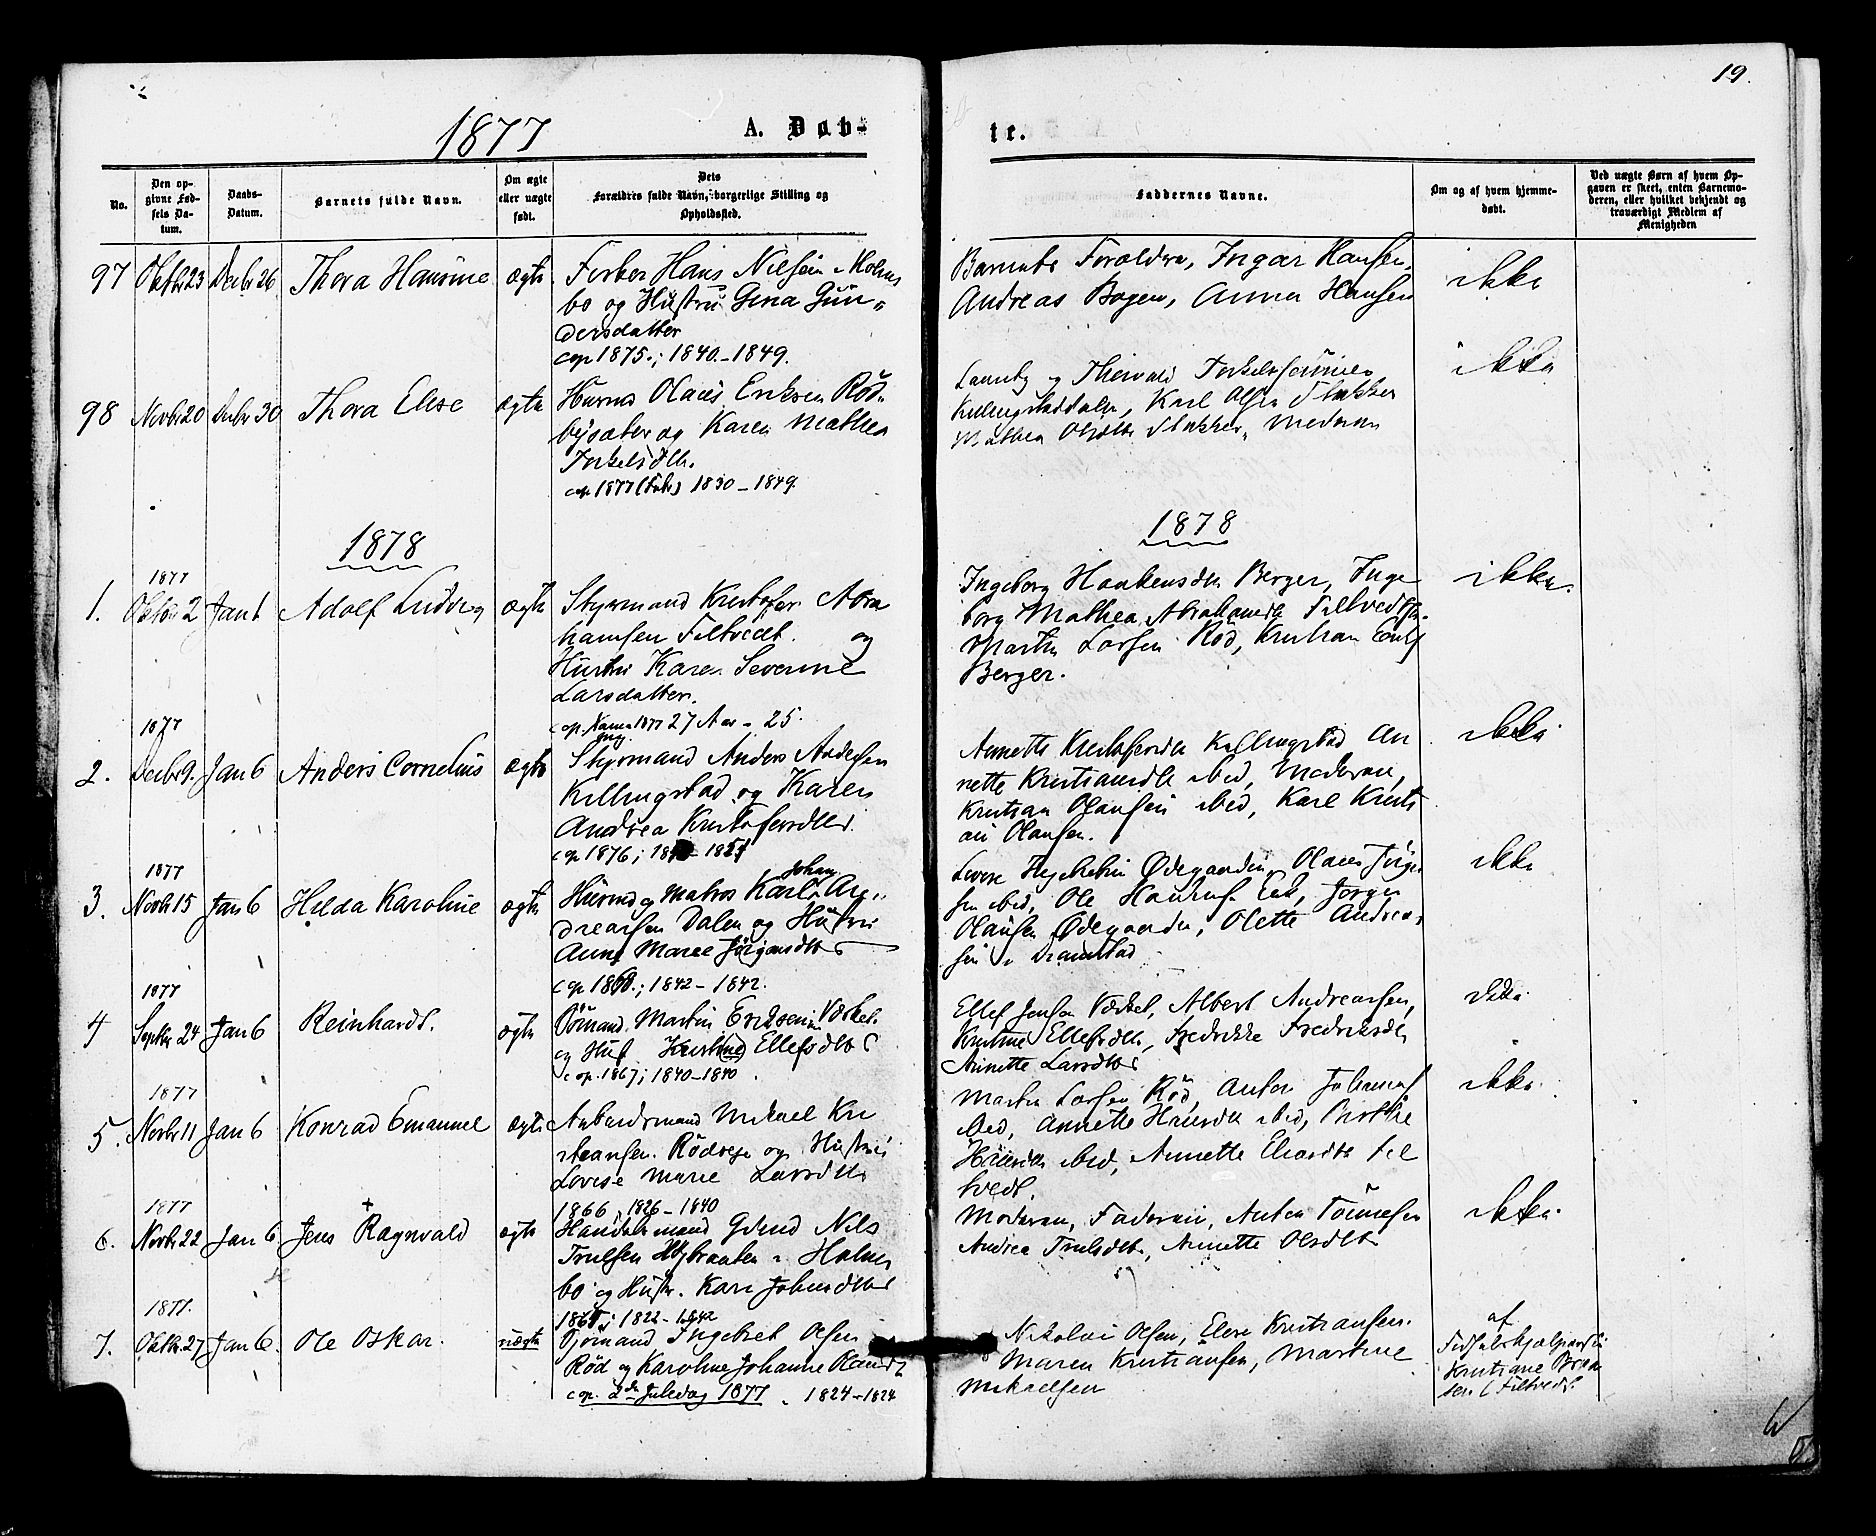 19.
1877
A. Døb-
te.
No.
Den op-
givne Fød-
sels Da-
tum.
Daabs-
Datum.
Barnets fulde Navn.
Om ægte
eller uægte
født.
Dets
Forældres fulde Navn, borgerlige Stilling og
Opholdssted.
Faddernes Navne.
Om og af hvem hjemme-
døbt.
Ved uægte Børn af hvem Op-
gaven er skeet, enten Barnemo-
deren, eller hvilket bekjendt og
troværdigt Medlem af
Menigheden
97 Oktbr 23 Decbr 26 Thora Hansine ægte
Hans Nilsen i Holms
bo og Hustru Gina Gun-
dersdatter
cop 1875.; 1840.-1849.
Barnets Forældre, Ingar Hansen,
Andreas Bogen, Anna Hansen
ikke
98 Novbr 20 Decbr 30 Thora Elise ægte
Olaus Eriksen Rød-
og Karen Mathea
Torkelsdtr.
cop 1877 1830-1849.
og Thorvald
Killingstaddalen, Karl Olsen Stokker
Mathea Olsdtr Stokker, Moderen
ikke
1878
1878
1877
1. Oktbr 2 Jan 1 Adolf Ludvig ægte
Styrmand Kristofer Abra
hamsen Filtvedt. og
Hustru Karen Severine
Larsdatter.
cop. 1877 27 Aar - 25.
Ingeborg Haakensdtr Berger, Inge
borg Mathea Abrahamsdtr Filtvedt,
Martin Larsen Rød, Kristian Emil
Berger.
ikke.
1877
2. Decbr 9. Jan 6 Anders Cornelius ægte
Styrmand Anders Andersen
Killingstad og Karen
Andrea Kristofersdtr.
cop 1876; 1851
Annette Kristofersdtr Killingstad An
nette Kristiansdtr ibid, Moderen,
Kristian Olausen ibid, Karl Kristi
an Olausen.
ikke
1877
3. Novbr 15 Jan 6 Hilda Karoline ægte
Johan
Husmd og Matros Karl An-
dreasen Dalen og Hustru
Anne Marie Jørgensdtr
cop 1869.; 1842-1842.
Ødegaarden, Olaus Jørgen
sen ibid, Ole Hansen Eek, Jørgen
Olausen Ødegaarden, Olette Andrea-
sen i Dramstad
ikke
1877
4 Septbr 24 Jan 6 Reinhardt. ægte
Sømand Martin Eriksen Værket.
og Hust. Kirstine Ellefsdtr
cop. 1867; 1840-1840.
Ellef Jensen Værket, Albert Andreassen,
Kirstine Ellefsdtr, Fredrikke Fredriksdtr
Annette Larsdtr
ikke
1877
5. Novbr 11 Jan 6 Konrad Emanuel ægte
Arbeidsmand Mikael Kri
stiansen Rødseje og Hustru
Lovise Marie Larsdtr
1866, 1826-1840
Martin Larsen Rød, Anton Johansen
ibid, Annette Hansdtr ibid,
ibid, Annette Filt
vedt.
ikke
1877
6. Novbr 22 Jan 6 Jens Ragnvald ægte
+
Handelsmand Nils
Trulsen Nybraaten i Holms
bo og Hustr. Kari Johnsdtr
1822-1842
Moderen, Faderen, Anton Tønnesen
Andrea Trulsdtr, Annette Olsdtr
ikke.
1877.
7. Oktbr. 27 Jan 6. Ole Oskar. uægte
Sømand Ingebret Olsen
Rød og Karoline Johanne
cop. 2den Juledag 1877. 1824-1824
Nikolai Olsen, Elise Kristiansen.
Maren Kristiansen, Martine
Mikaelsen
af
Kristiane
Filtvedt.